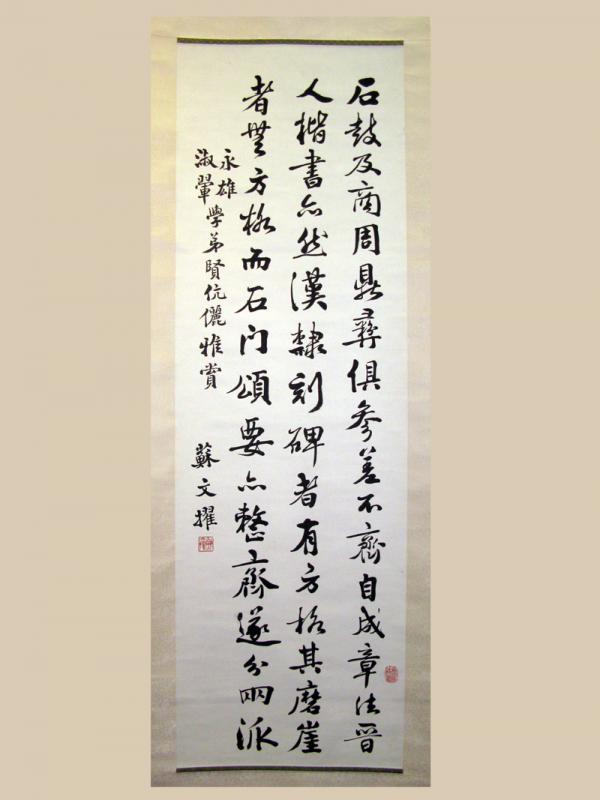 石鼓及商周鼎彝俱參差不齊自成章法晉
人楷書亦然漢隸刻碑者有方格其磨崖
者無方格而石門頌要亦整齊遂分兩派
永雄
淑翬
學弟賢伉儷雅賞
蘇文擢